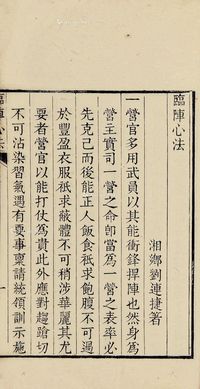 臨陣心法
湘鄉劉連捷著
一營官多用武員以其能衝鋒捍陣也然身爲
營主實司一營之命卽當爲一營之表率必
先克己而後能正人飲食祇求飽腹不可過
於豐盈衣服祇求蔽體不可稍涉華麗其尤
要者營官以能打仗爲貴此外應對趨蹌切
不可沾染習氣遇有要事稟請統領訓示施
臨陣心法
一